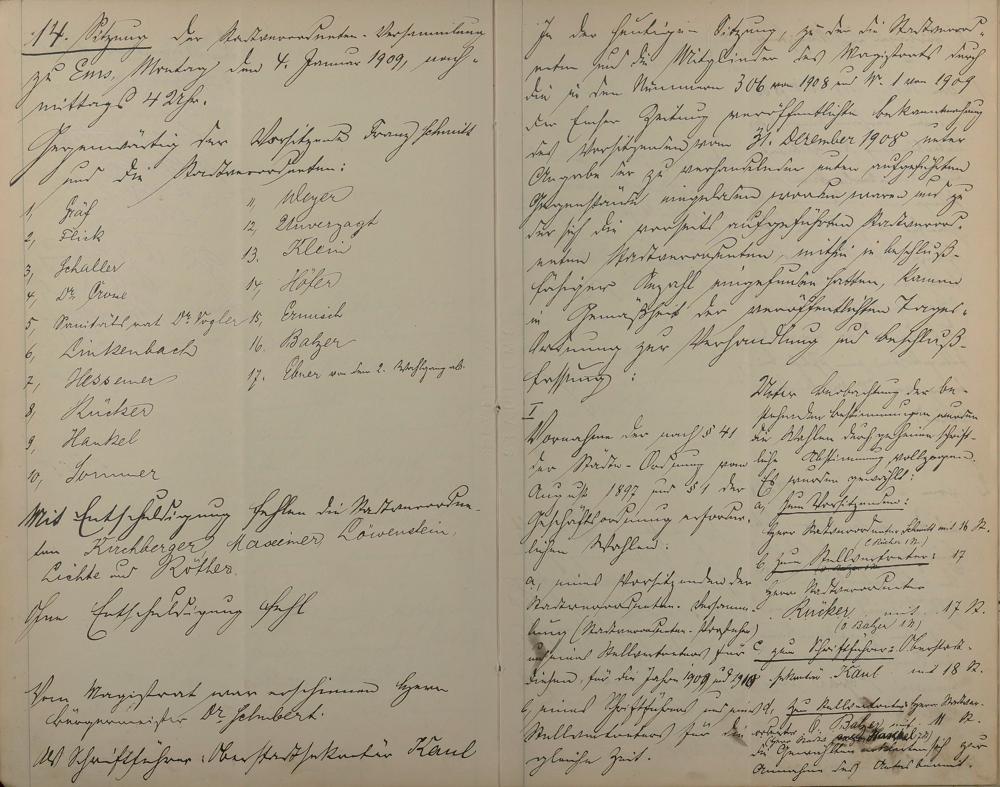 14. Sitzung der Stadtverordneten-Versammlung
zu Ems, Montag den 4. Januar 1909, nach-
mittags 4 Uhr.
Gegenwärtig der Vorsitzende Franz Schmitt
und die Stadtverordneten:
1, Gräf
2, Flick
3, Schaller
4, Dr. Crone
5, Sanitätsrat Dr. Vogler
6, Linkenbach
7, Hessemer
8, Rücker
9, Hankel
10, Sommer
11, Weyer
12, Unverzagt
13. Klein
14, Höfer
15, Ermisch
16. Balzer
17. Ebner von dem 2. Wahlgang ab.
Mit Entschuldigung fehlen die Stadtverordne-
ten Kirchberger, Maxeiner, Löwenstein,
Lichte und Röther.
Ohne Entschuldigung fehlt
Vom Magistrat war erschienen Herr
Bürgermeister Dr. Schubert.
Als Schriftführer: Oberstadtsekretär Kaul
In der heutigen Sitzung, zu der die Stadtverord-
neten und die Mitglieder des Magistrats durch
die in den Nummern 306 von 1908 und Nr. 1 von 1909
der Emser Zeitung veröffentlichte Bekanntmachung
des Vorsitzenden vom 31. Dezember 1908 unter
Angabe der zu verhandelnden unten aufgeführten
Gegenstände eingeladen worden waren und zu
der sich die vorseits aufgeführten Stadtverord-
neten Stadtverordneten, mithin in beschluß-
fähiger Anzahl eingefunden hatten, kamen
in Gemäßheit der veröffentlichten Tages-
Ordnung zur Verhandlung und Beschluß-
fassung:
I
Vornahme der nach § 41
der Städte-Ordnung vom
August 1897 und § 1 der
Geschäftsordnung erforder-
lichen Wahlen:
a, eines Vorsitzenden der
Stadtverordneten-Versamm-
lung (Stadtverordneten-Vorsteher)
und eines Stellvertreters für
diesen, für die Jahre 1909 und 1910
b, eines Schriftführers und eines
Stellvertreters für die
gleiche Zeit.
Unter Beobachtung der be-
stehenden Bestimmungen wurden
die Wahlen durch geheime schrift-
liche Abstimmung vollzogen.
Es wurden gewählt:
a, zum Vorsitzenden:
Herr Stadtverordneter Schmitt mit 16 St.
(Rücker 1 St.)
b, zum Stellvertreter: 17
Herr Stadtverordneter
Rücker mit 17 St.
(Balzer 1 St.)
c, zum Schriftführer: Oberstadt-
sekretär Kaul mit 18 St.
d, zum Stellvertreter: Herr Stadtver-
ordneter Balzer mit 11 St.
Hankel
die Gewählten erklärten sich zur
Annahme des Amtes bereit.